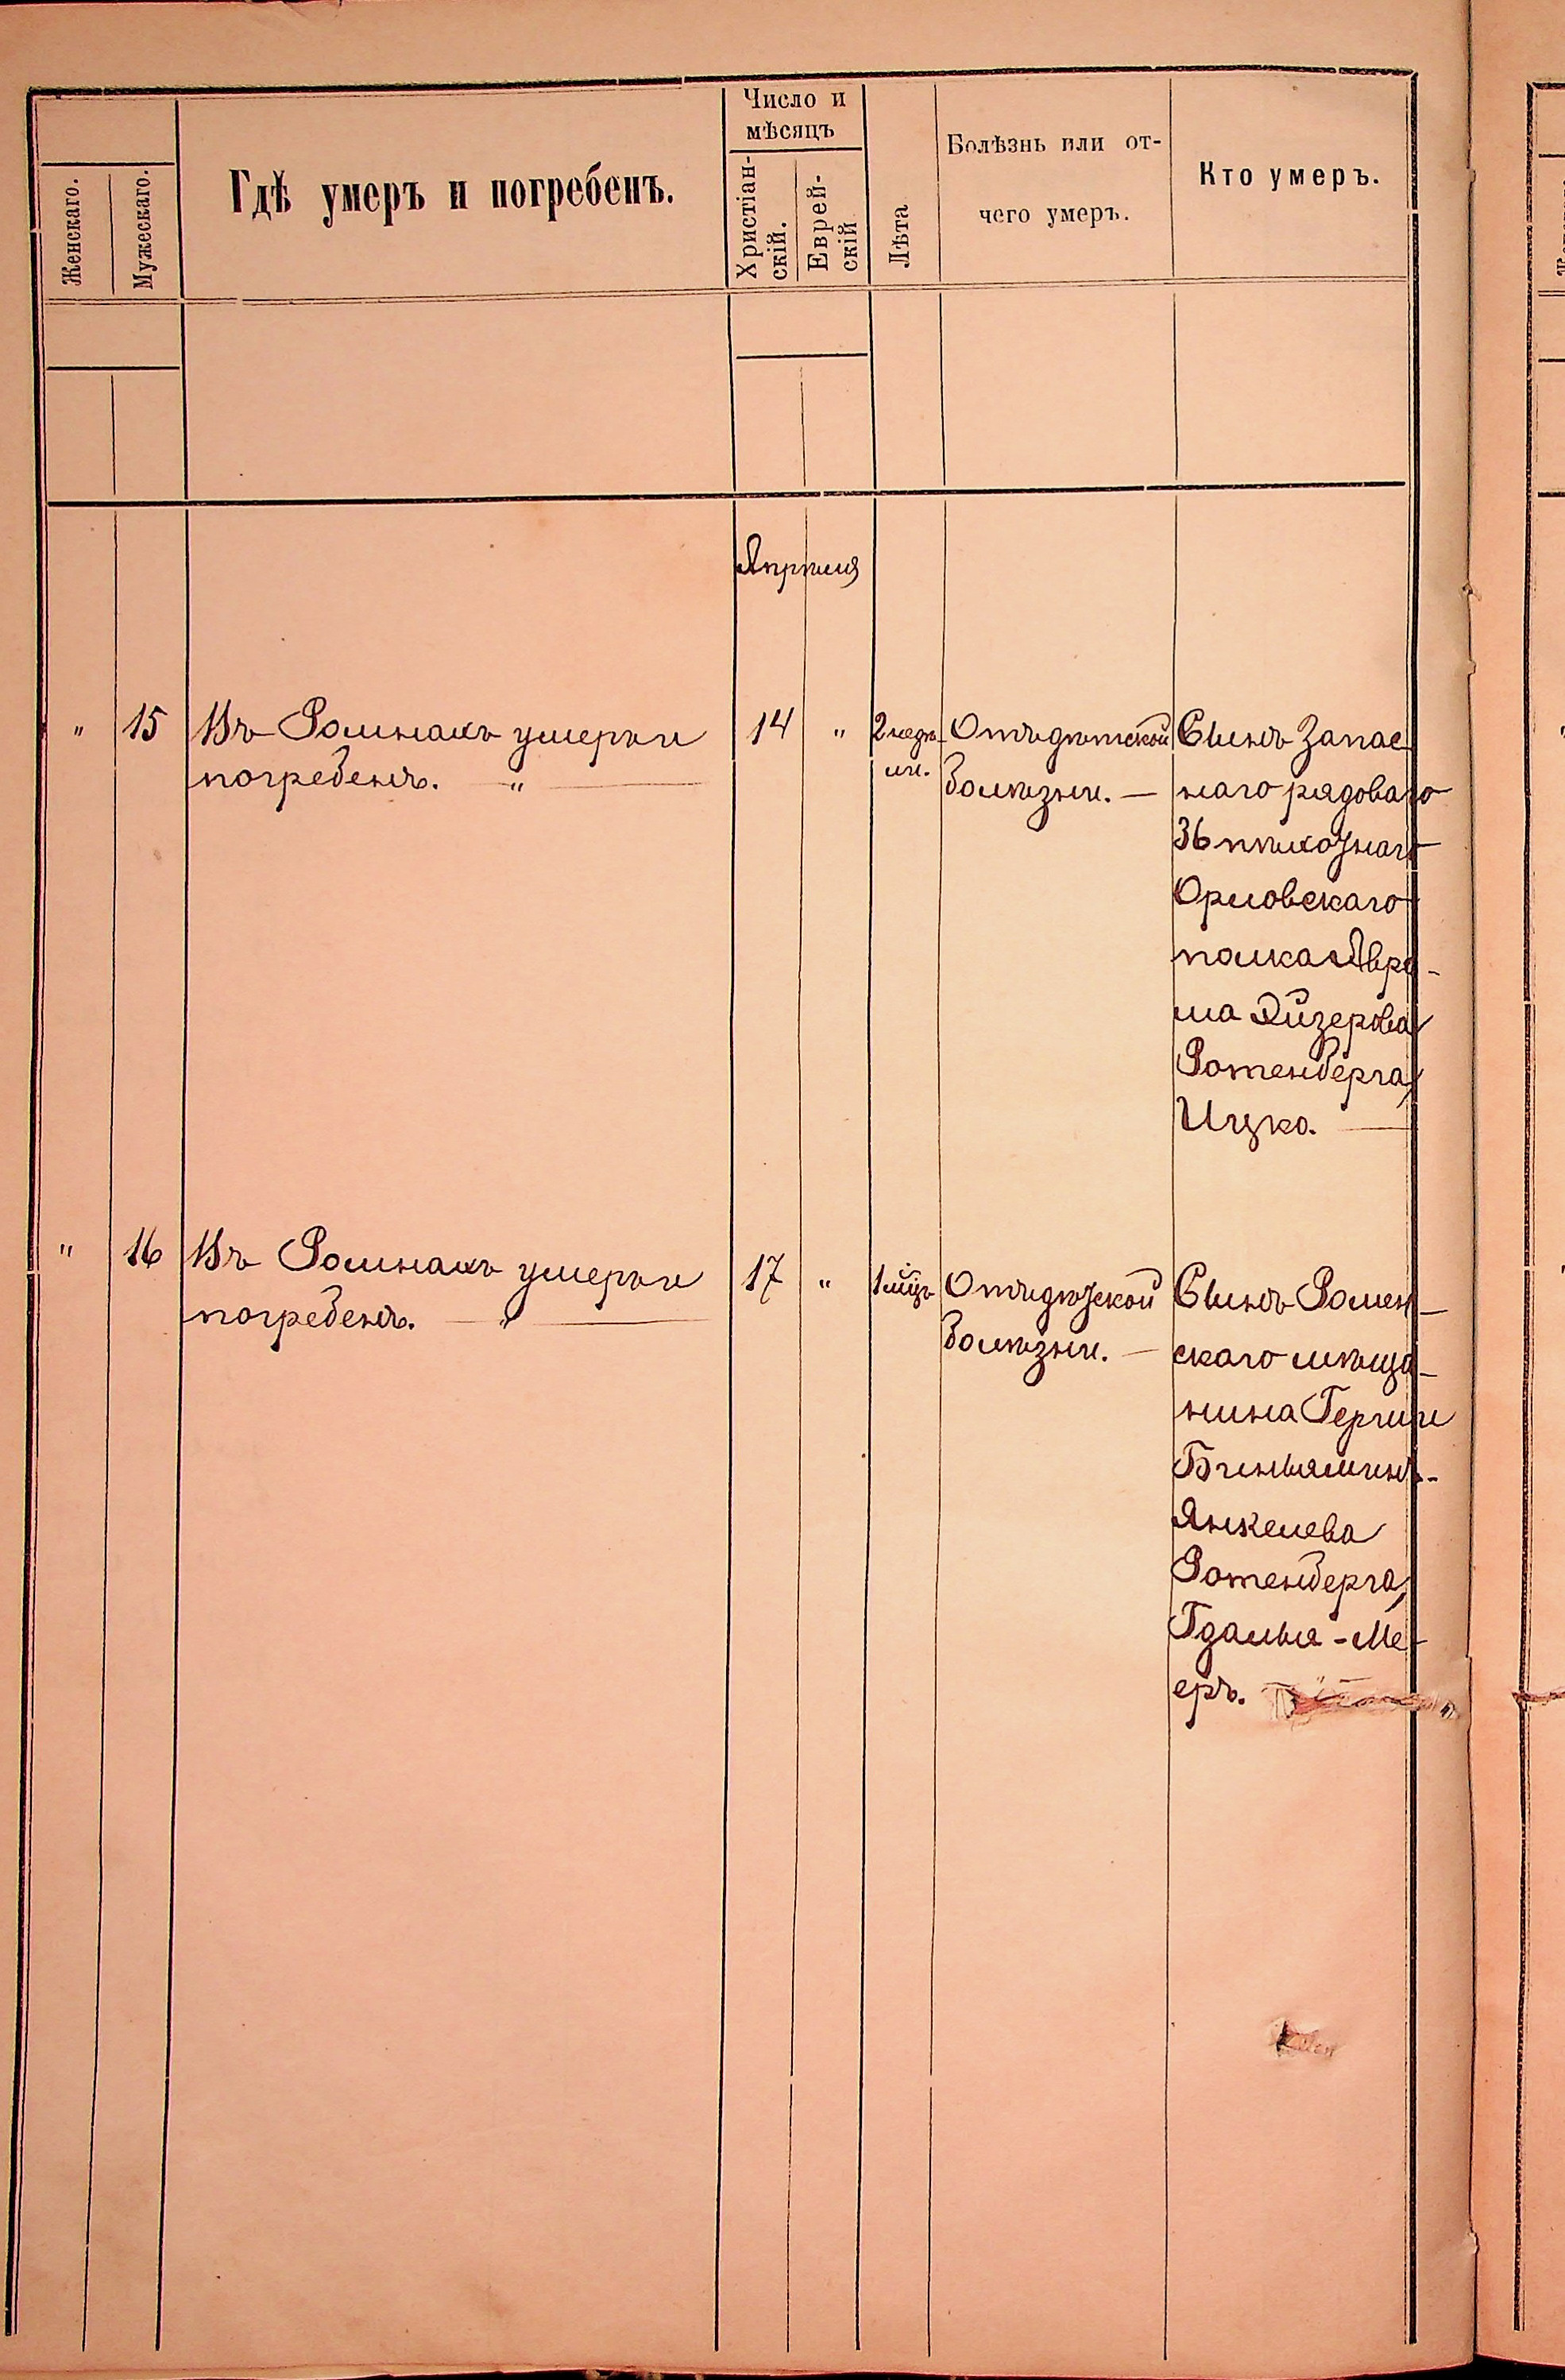 Число и
мѣсяцъ
Женскаго.
Мужескаго.
Гдѣ умеръ и погребенъ.
Христіан-
скій.
Еврей-
скій
Лѣта
Болѣзнь или от-
чего умеръ.
Кто умеръ.
Апрѣля
" 15 Въ Ромнахъ умеръ и
погребенъ. — " —
14 "
2 недѣ-
ли.
Отъ дѣтской
болѣзни. —
Сынъ Запас-
наго рядоваго
36 пѣхотнаго
Орловскаго
полка Авра-
ма Лйзерова
Ротенберга,
Ицко. —
" 16 Въ Ромнахъ умеръ и
погребенъ. — " —
17 "
1 м̃цъ
Отъ дѣтской
болѣзни. —
Сынъ Ромен-
скаго мѣща-
нина Герши
Биньяминъ-
Янкелева
Ротенберга,
Гдалья-Ме-
еръ.